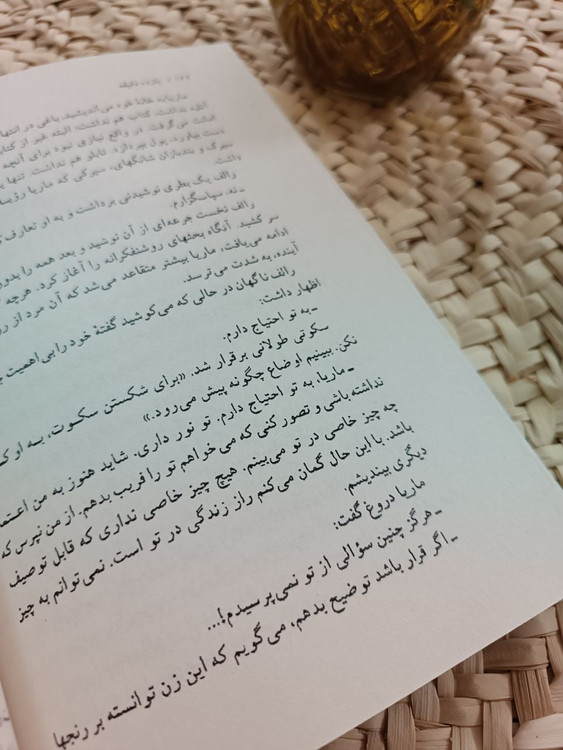 یازده دقیقه
ماریا به خانهٔ خود می‌اندیشید، باغی در انتها
آنقدر نداشت، کتاب هم نداشت، البته غیر از کتاب
امانت می‌گرفت. در واقع نیازی نبود برای آنچه
دست بیاورد، پول بپردازد. تابلو هم نداشت، تنها
سیرک و بندبازان شانگهای، سیرکی که ماریا رؤیا
داشت.
رالف یک بطری نوشیدنی برداشت و به او تعارف
ـ نه، سپاسگزارم.
رالف نخست جرعه‌ای از آن نوشید و بعد همه را بدون
سر کشید. آنگاه بحثهای روشنفکرانه را آغاز کرد. هرچه
ادامه می‌یافت، ماریا بیشتر متقاعد می‌شد که آن مرد از
آینده، به شدت می‌ترسد.
رالف ناگهان در حالی که می‌کوشید گفتهٔ خود را بی‌اهمیت
اظهار داشت:
ـ به تو احتیاج دارم.
سکوتی طولانی برقرار شد. «برای شکستن سکوت، به او
نکن. ببینیم اوضاع چگونه پیش می‌رود.»
ـ ماریا، به تو احتیاج دارم. تو نور داری. شاید هنوز به من اعتماد
نداشته باشی و تصور کنی که می‌خواهم تو را فریب بدهم. از من نپرس که
چه چیز خاصی در تو می‌بینم. هیچ چیز خاصی نداری که قابل توصیف
باشد. با این حال گمان می‌کنم راز زندگی در تو است. نمی‌توانم به چیز
دیگری بیندیشم.
ماریا دروغ گفت:
ـ هرگز چنین سؤالی از تو نمی‌پرسیدم!...
ـ اگر قرار باشد توضیح بدهم، می‌گویم که این زن توانسته بر رنجها